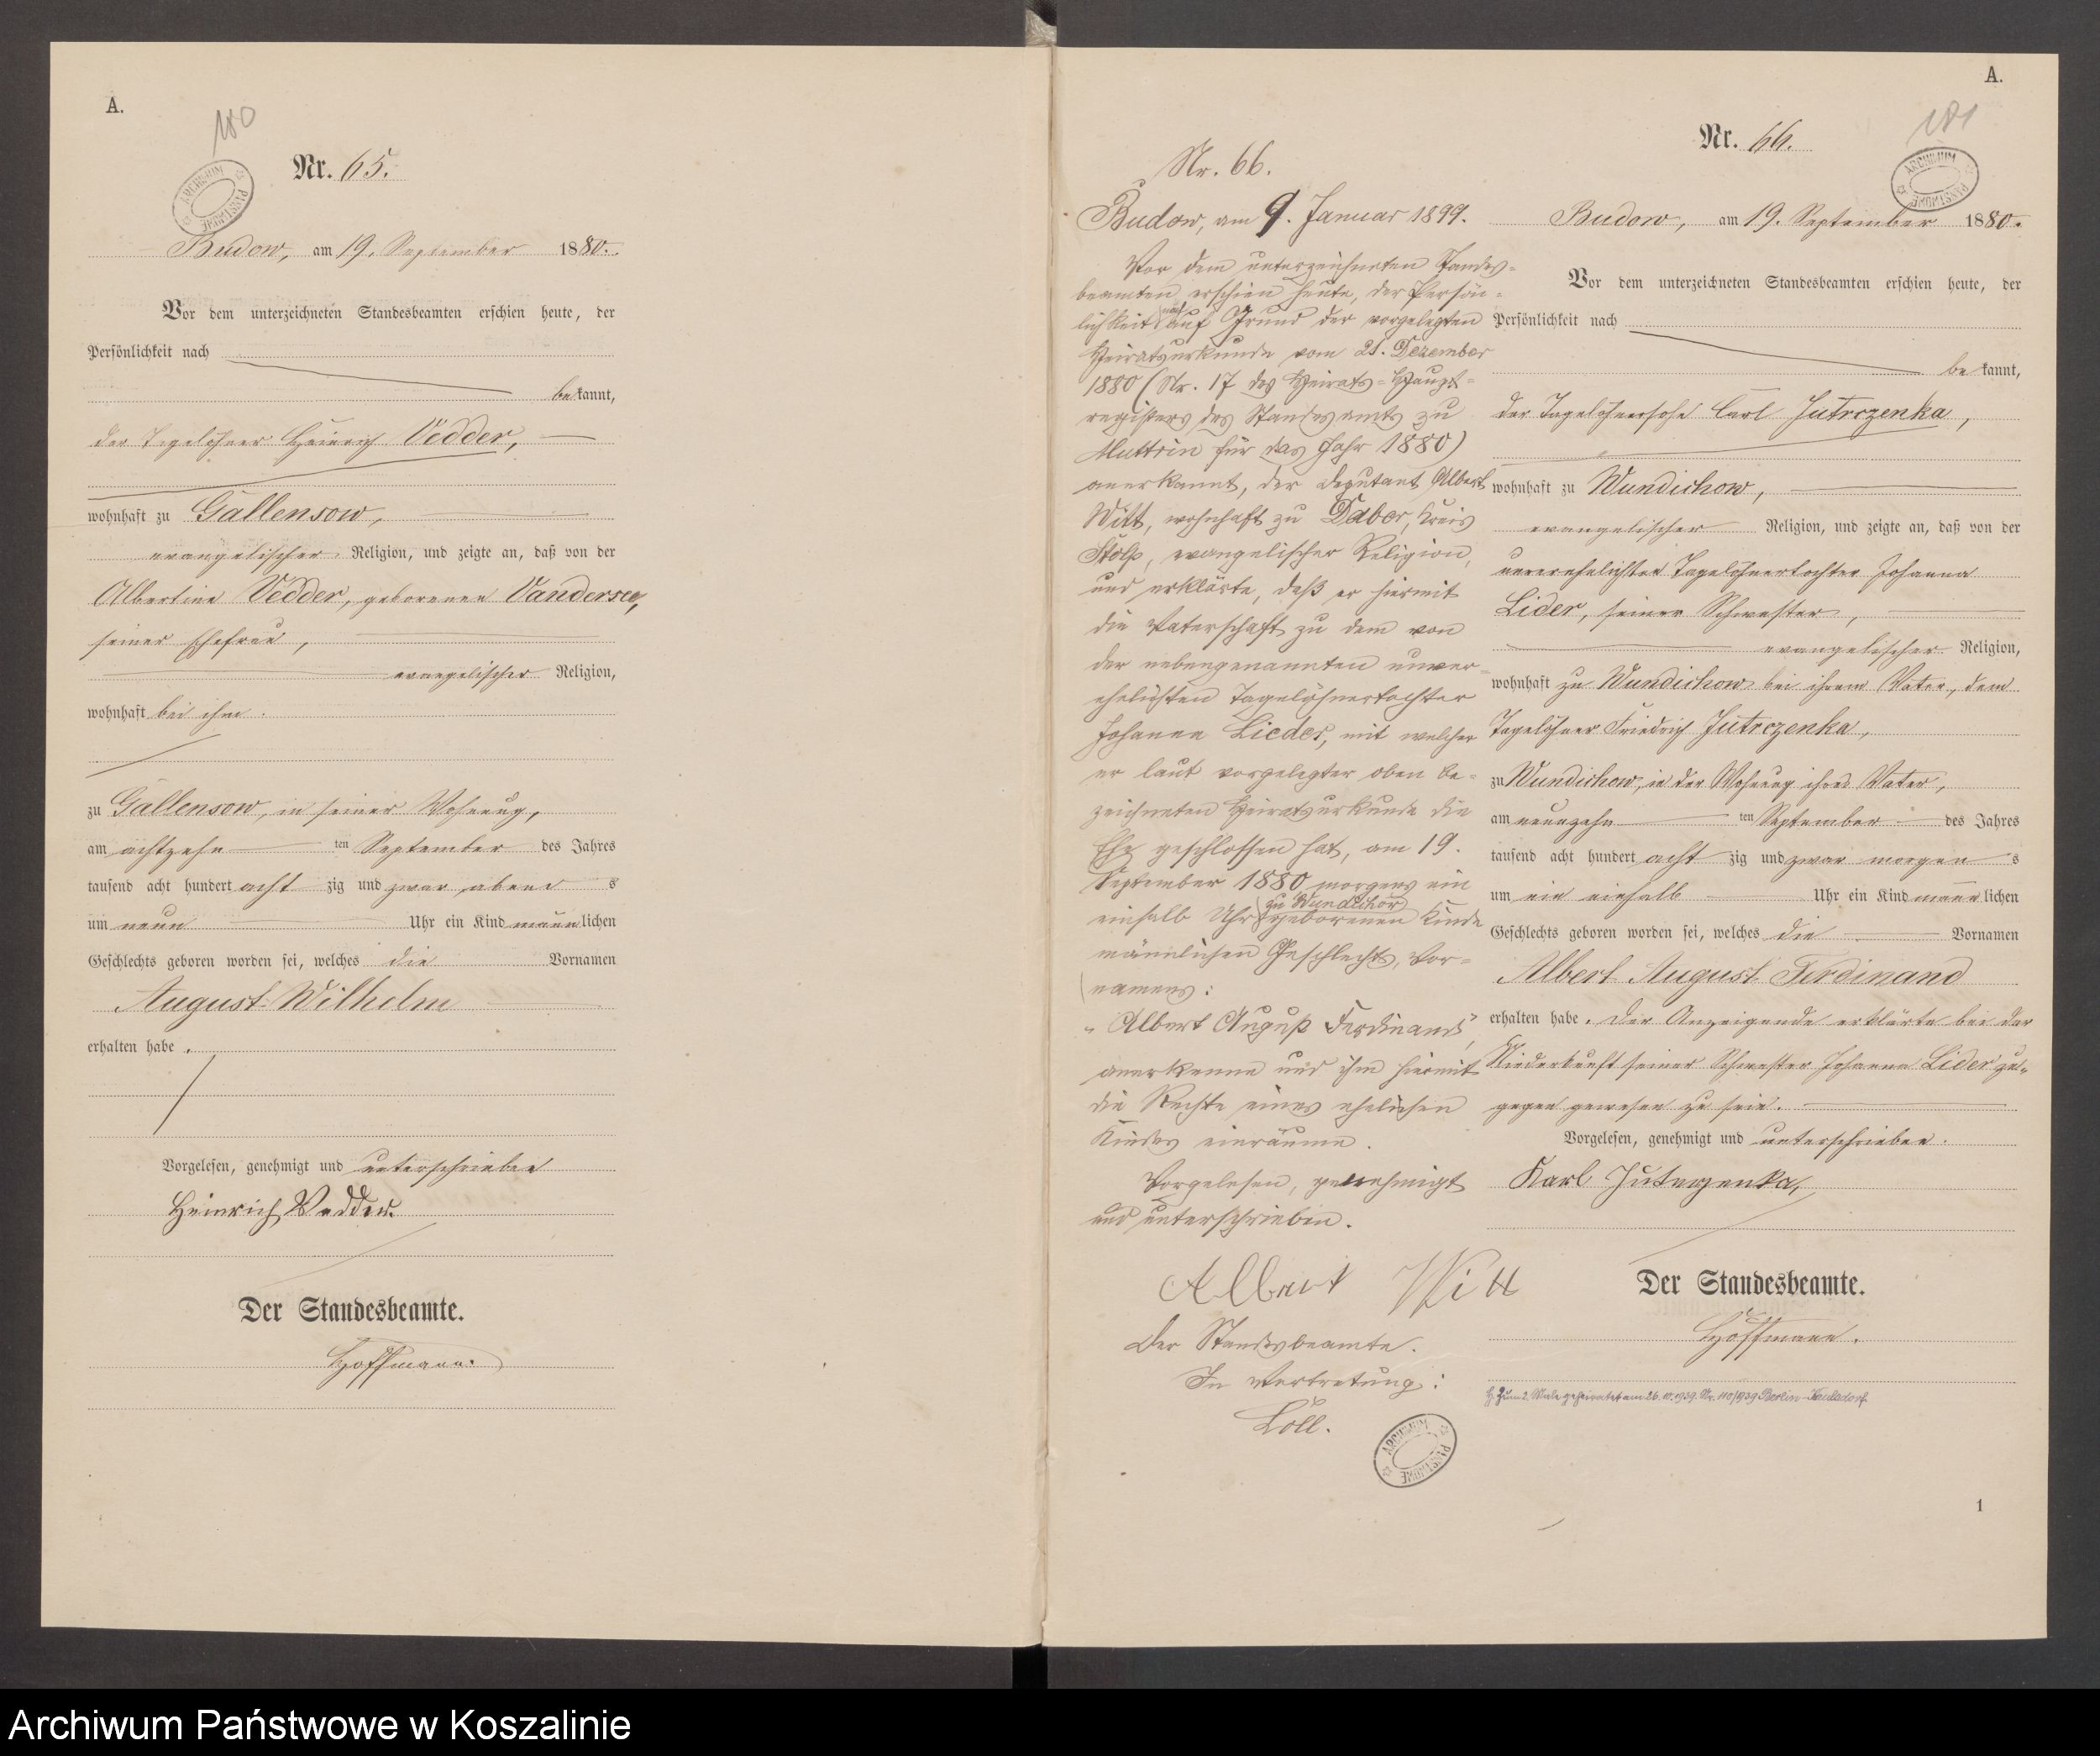 A.
180
Nr. 65.
ARCHIWUM PAŃSTWOWE
Budow, am 19. September 1880.
Vor dem unterzeichneten Standesbeamten erschien heute, der
Persönlichkeit nach
be kannt,
der Tagelöhner Heinrich Vedder,
wohnhaft zu Gallensow,
evangelischer Religion, und zeigte an, daß von der
Albertine Vedder, geborenen Vandersee,
seiner Ehefrau,
evangelischer Religion,
wohnhaft bei ihm.
zu Gallensow, in seiner Wohnung,
am achtzehn ten September des Jahres
tausend acht hundert acht zig und zwar abend s
um neun Uhr ein Kind männ lichen
Geschlechts geboren worden sei, welches die Vornamen
August Wilhelm
erhalten habe.
Vorgelesen, genehmigt und unterschrieben
Heinrich Vedder.
Der Standesbeamte.
Hoffmann.
Nr. 66.
Budow, am 9. Januar 1899.
Vor dem unterzeichneten Standes-
beamten erschien heute, der Persön-
lichkeit nach auf Grund der vorgelegten
Heiratsurkunde vom 21. Dezember
1880 (Nr. 17 des Heirats-Haupt-
registers des Standesamts zu
Muttrin für das Jahr 1880)
anerkannt, der Deputant Albert
Witt, wohnhaft zu Daber, Kreis
Stolp, evangelischer Religion,
und erklärte, daß er hiermit
die Vaterschaft zu dem von
der nebengenannten unver-
ehelichten Tagelöhnertochter
Johanna Lieder, mit welcher
er laut vorgelegter oben be-
zeichneten Heiratsurkunde die
Ehe geschlossen hat, am 19.
September 1880 morgens ein
einhalb Uhr zu Wundichow geborenen Kinde
männlichen Geschlechts, Vor-
namens:
"Albert August Ferdinand",
anerkenne und ihm hiermit
die Rechte eines ehelichen
Kindes einräume.
Vorgelesen, genehmigt
und unterschrieben.
Albert Witt
Der Standesbeamte.
In Vertretung:
Löll.
ARCHIWUM PAŃSTWOWE
A.
181
Nr. 66.
ARCHIWUM PAŃSTWOWE
Budow, am 19. September 1880.
Vor dem unterzeichneten Standesbeamten erschien heute, der
Persönlichkeit nach
be kannt,
der Tagelöhnersohn Carl Jutrczenka,
wohnhaft zu Wundichow,
evangelischer Religion, und zeigte an, daß von der
unverehelichten Tagelöhnertochter Johanna
Lider, seiner Schwester,
evangelischer Religion,
wohnhaft zu Wundichow bei ihrem Vater, dem
Tagelöhner Friedrich Jutrczenka,
zu Wundichow, in der Wohnung ihres Vater,
am neunzehn ten September des Jahres
tausend acht hundert acht zig und zwar morgen s
um ein einhalb Uhr ein Kind männ lichen
Geschlechts geboren worden sei, welches die Vornamen
Albert August Ferdinand
erhalten habe. Der Anzeigende erklärte bei der
Niederkunft seiner Schwester Johanna Lider zu-
gegen gewesen zu sein.
Vorgelesen, genehmigt und unterschrieben.
Karl Juterzenka,
Der Standesbeamte.
Hoffmann.
Zum 2. Male geheiratet am 26. 10. 1939. Nr. 110/1939 Berlin-Kaulsdorf
1
Archiwum Państwowe w Koszalinie